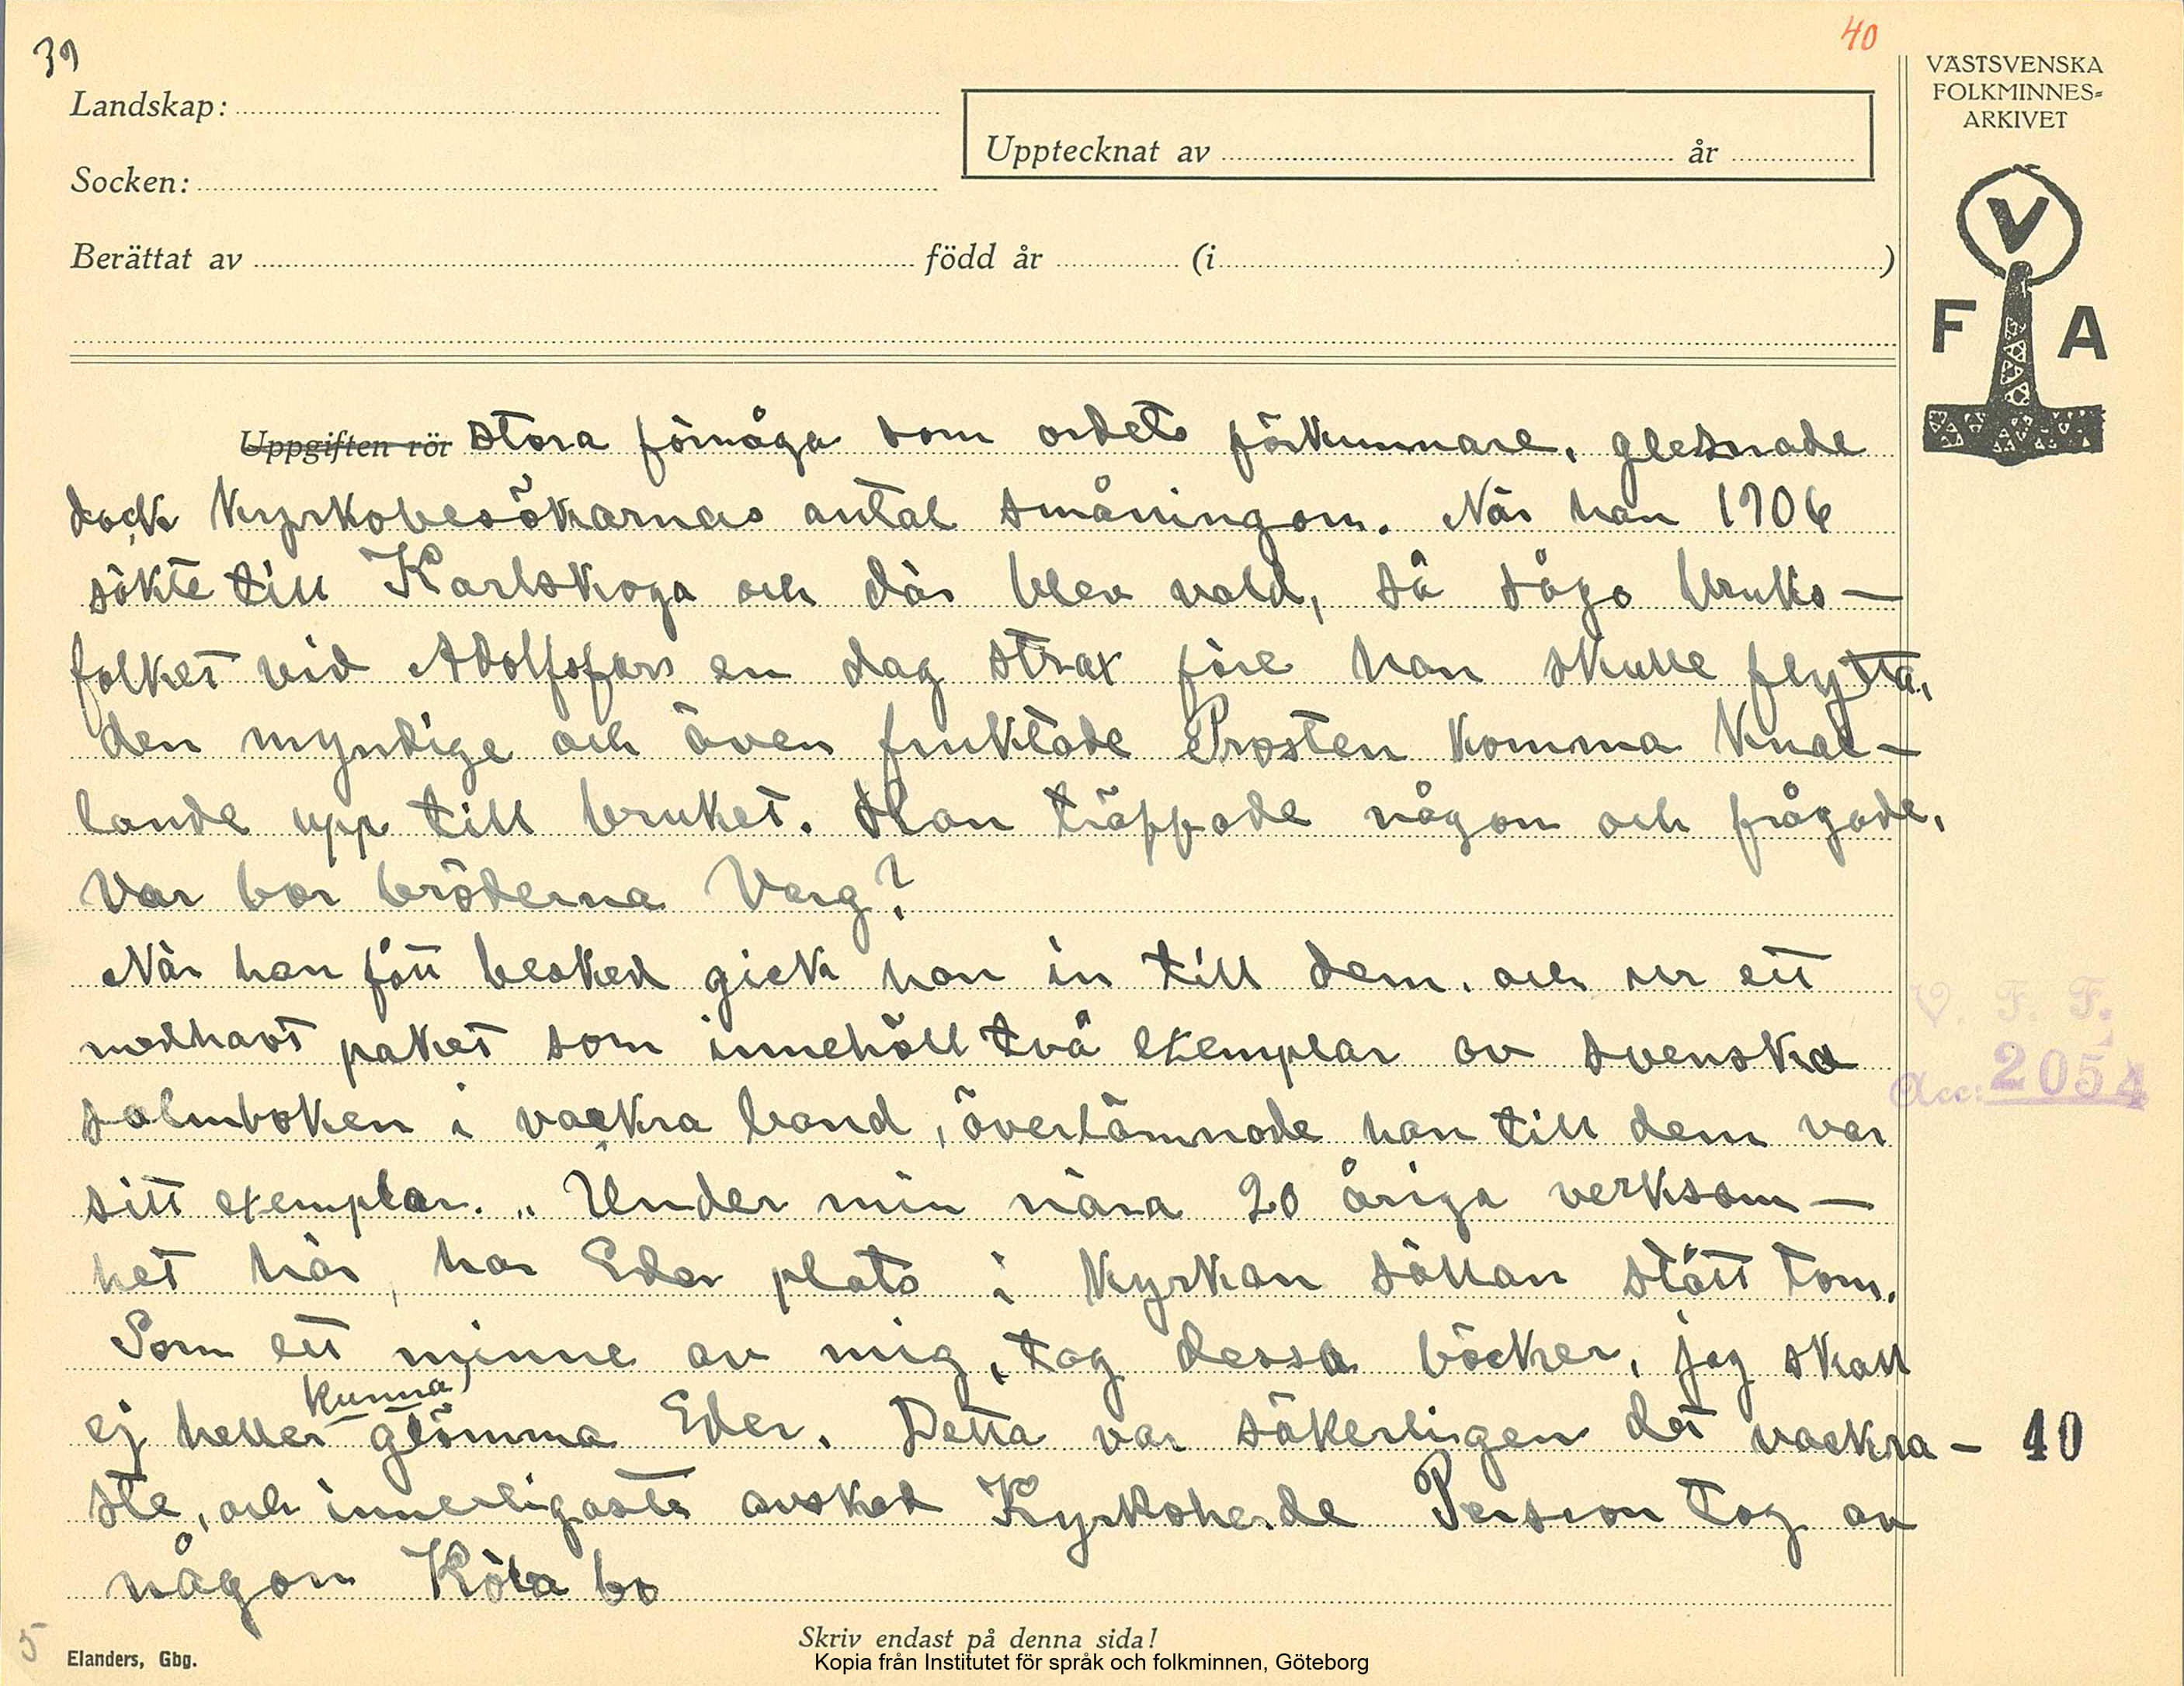 39
40
VÄSTSVENSKA
FOLKMINNES=
ARKIVET
Landskap:
Upptecknat av år
Socken:
Berättat av född år (i )
V
F A
Uppgiften rör stora förmåga som ordets förkunnare, glesnade
dock kyrkobesökarnas antal småningom. När han 1906
sökte till Karlskoga och där blev vald, så sågo bruks–
folket vid Adolfsfors en dag strax före han skulle flytta,
den myndige och även fruktade Prosten komma knal–
lande upp till bruket. Han träffade någon och frågade,
Var bor bröderna Varg?
När han fått besked gick han in till dem. och ur ett
medhavt paket som innehöll två exemplar av svenska
salmboken i vackra band, överlämnade han till dem var
sitt exemplar. „ Under min nära 20 åriga verksam–
het här, har Eder plats i kyrkan sällan stått tom.
Som ett minne av mig, tag dessa böcker, jag skall
kunna
ej heller glömma Eder. Detta var säkerligen det vackra–
40
ste, och innerligaste avsked Kyrkoherde Persson tog av
någon Köla bo
V. F. F.
Acc: 2054
5
Skriv endast på denna sida!
Elanders, Gbg.
Kopia från Institutet för språk och folkminnen, Göteborg